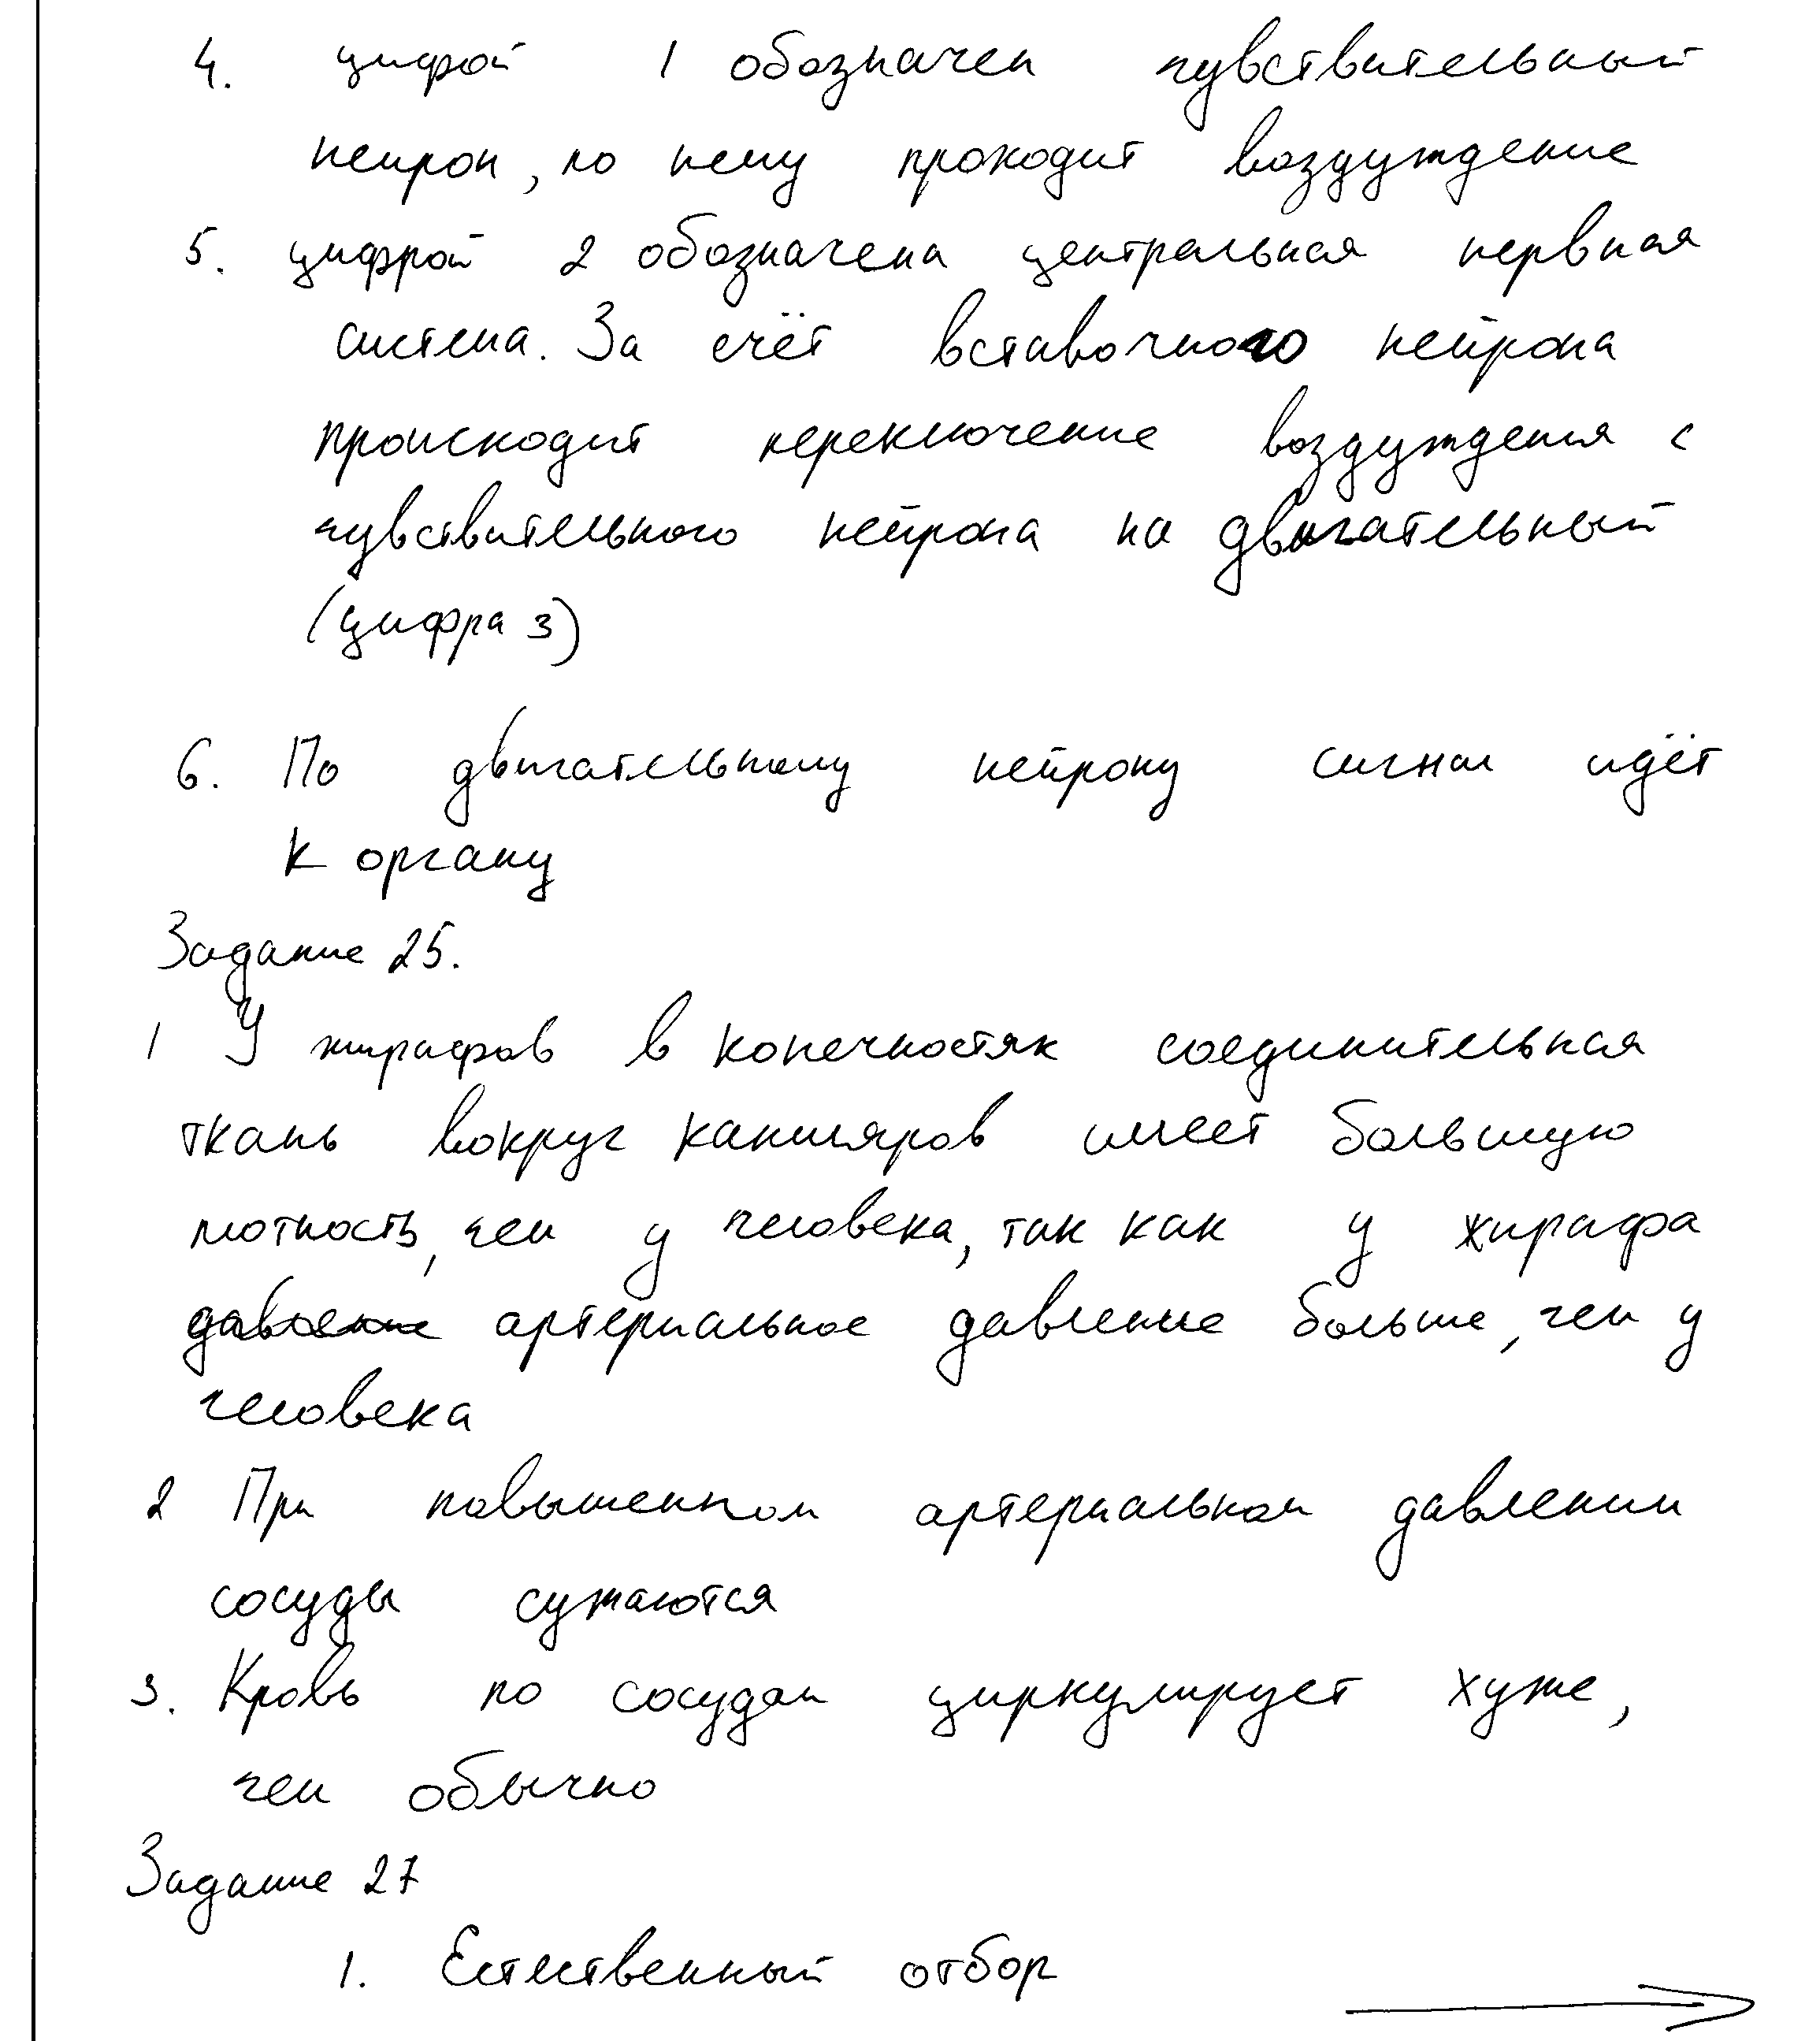 4. цифой 1 обозначен чувствительный
нейрон, по нему проходит воздуждение
5. цифрой 2 обозначена центральная нервная
система. За счёт вставочного нейрона
происходит переключение воздуждения с
чувствительного нейрона на двигательный
(цифра 3)
6. По двигательному нейрону сигнал идёт
к органу
Задание 25.
1 У жирафов в конечностях соединительная
ткань вокруг капилляров имеет большую
плотность, чем у человека, так как у жирафа
давление артериальное давление больше, чем у
человека
2 При повышенном артериальном давлении
сосуды сужаются
3. Кровь по сосудам циркулирует хуже,
чем обычно
Задание 27
1. Естественный отбор